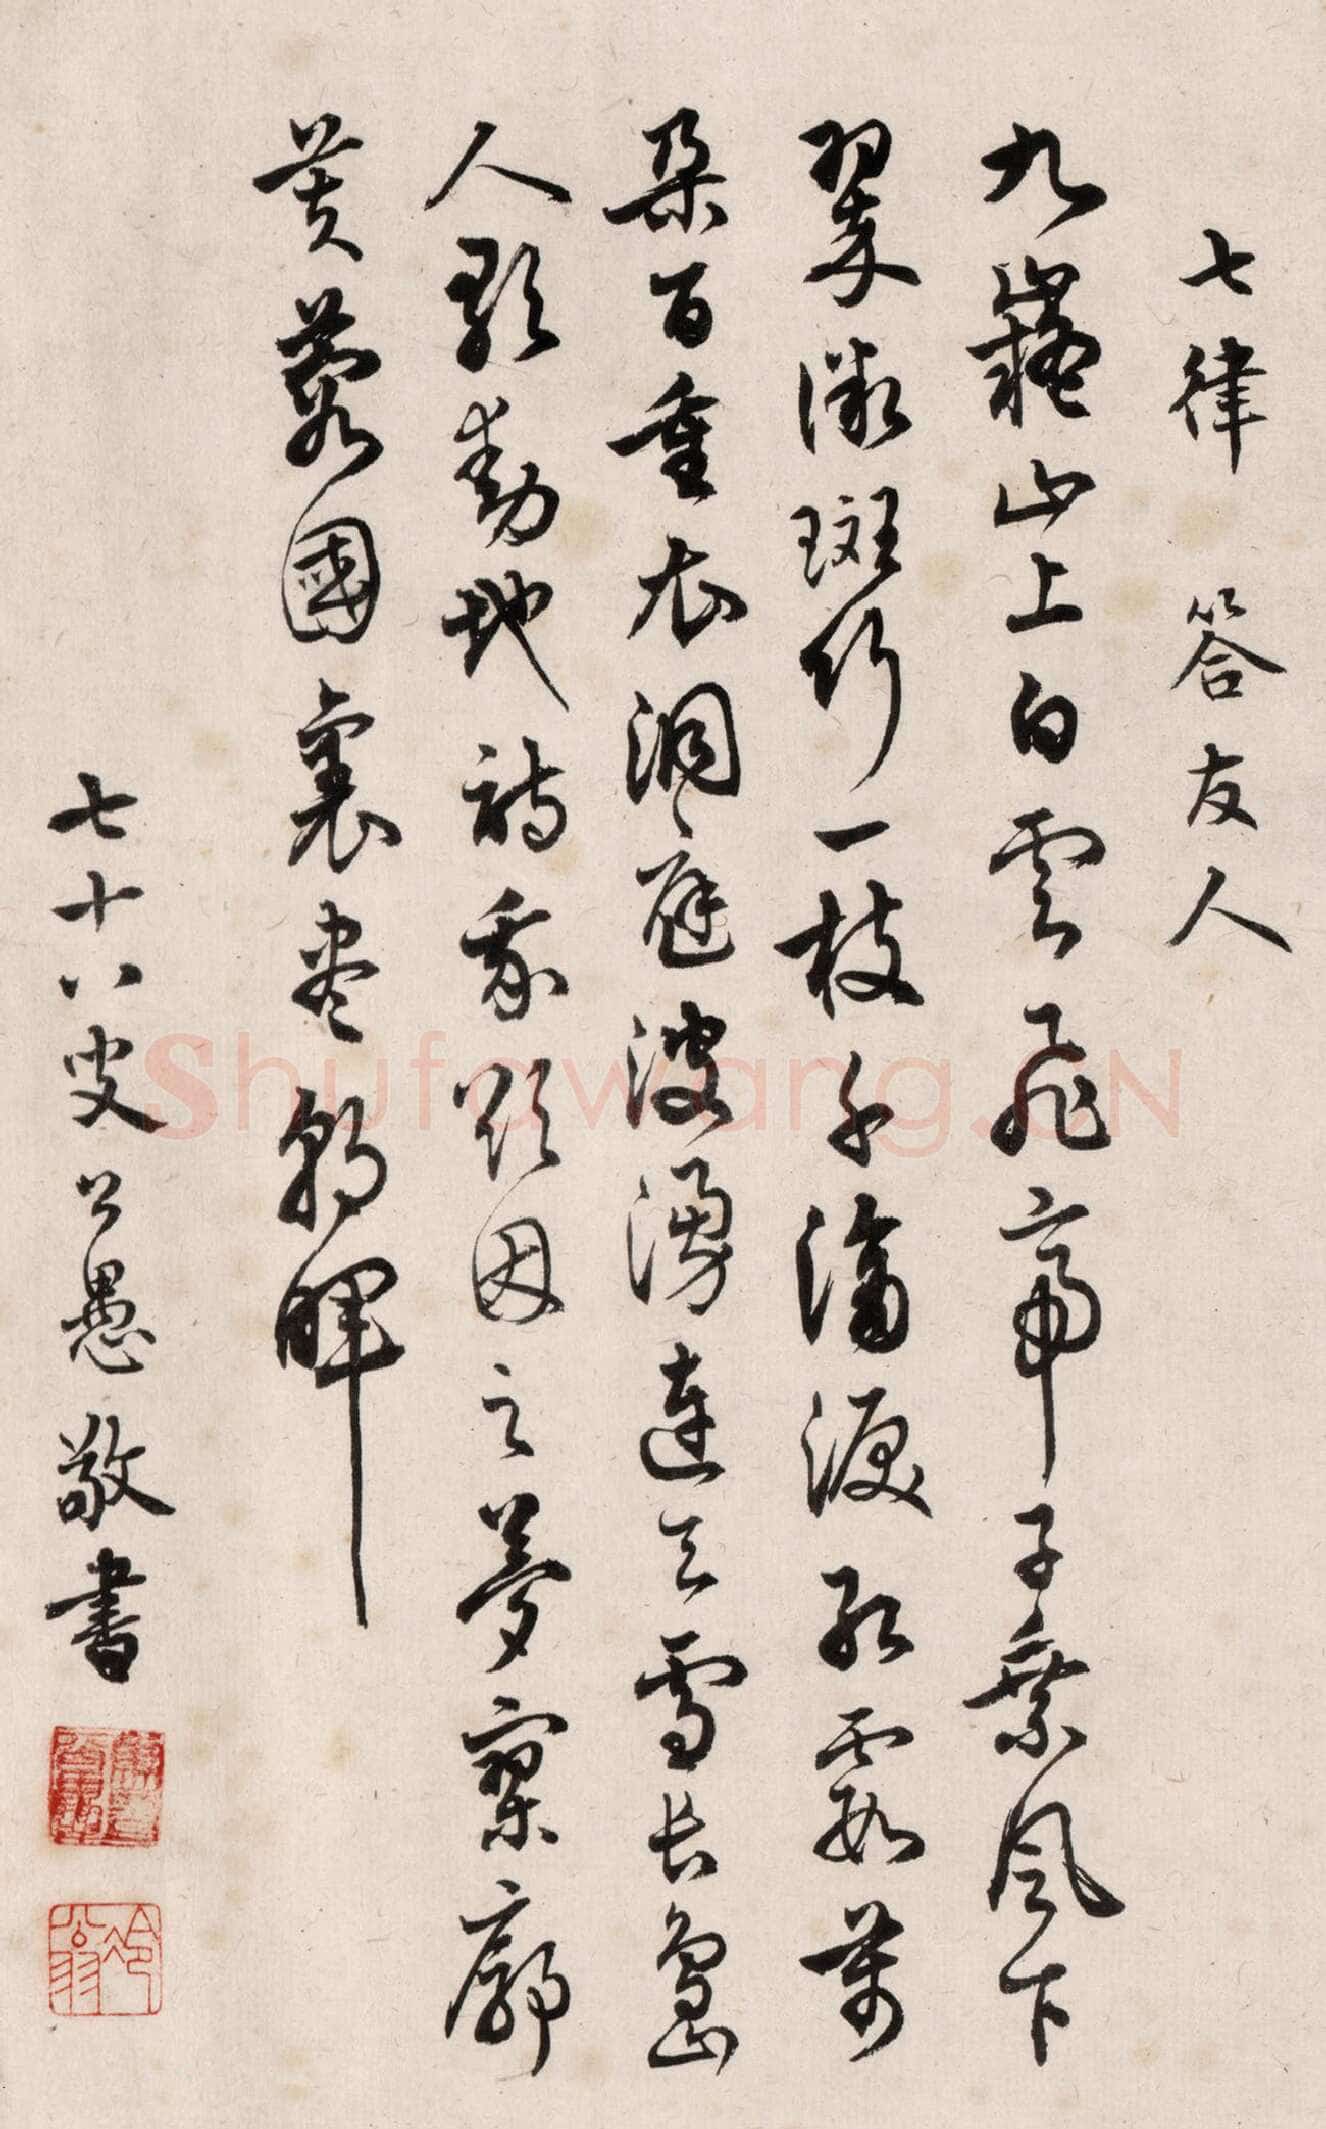 七律 答友人
九嶷山上白雲飛帝子乘風下
翠微斑竹一枝千滴淚紅霞萬
朵百重衣洞庭波湧連天雪長島
人歌動地詩我欲因之夢寥廓
芙蓉國裏盡朝暉
七十八叟公愚敬書
冷翁
Shufawang.CN